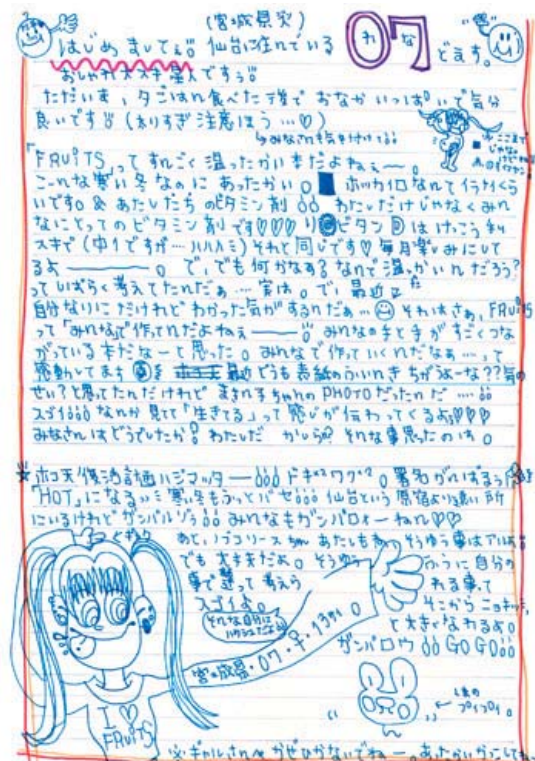 (宮城県災)
はじめましてぇ 仙台に住んでいる
れな
どぇす。
おしゃれ大スキ星人ですぅ
ただいま、夕ごはん食べた後で おなかいっぱいで気分
良いです (太りすぎ注意ほう…♡)
みなさんも気を付けて
「FRUiTS」ってすんごく温ったかい本だよねぇー。
こーんな寒い冬なのに あったかい。ホッカイロなんてイラナイくら
いです。& あたしたちのビタミン剤 わたしだけじゃなくみん
なにとってのビタミン剤です♡♡♡
はけっこう
スキで (中1ですが……ハハハ) それと同じです♡ 毎月楽しみにして
るよー。で、でも何かなぁ? なんで温かいんだろう?
ってしばらく考えてたんだぁ…実は。で、最近
自分なりにだけれど わかった気がするんだぁ… それはさぁ、FRUiTS
って「みんな」で作ってんだよねぇー みんなの手と手がすごくつな
がっている本だなーと思った。みんなで作っていくんだなぁ…って
感動してます どうも表紙のふいんきちがうよーな??気の
せい?と思ってたんだけれど ちゃんのPHOTOだったんだ…
スゴイ なんか見てて「生きてる」って感じが伝わってくるよ♡♡♡
みなさんはどうでしたか? わたしだ かしら? そんな事思ったのは。
☆ホコ天復活計画ハジマッター ドキドキワクワク。署名がんばろう
「HOT」になる 寒い冬もふっとバせ 仙台という原宿より遠い所
にいるけれどガンバルゾう みんなもガンバロォーねん♡♡
あと、 ちゃん あたしもね、そうゆう事はアルよ
でも大丈夫だよ。そうゆう ふうに自分の
事で迷って考えら れる事って
スゴイよ。 そこからニョキッと、
と大きくなれるよ。
ガンバロウ GO GO
宮城県・07・♀・13才。
I ♡
FRUiTS
プイプイ。
※ギャルさん かぜひかないでねー。あったかいかっこしてねっ